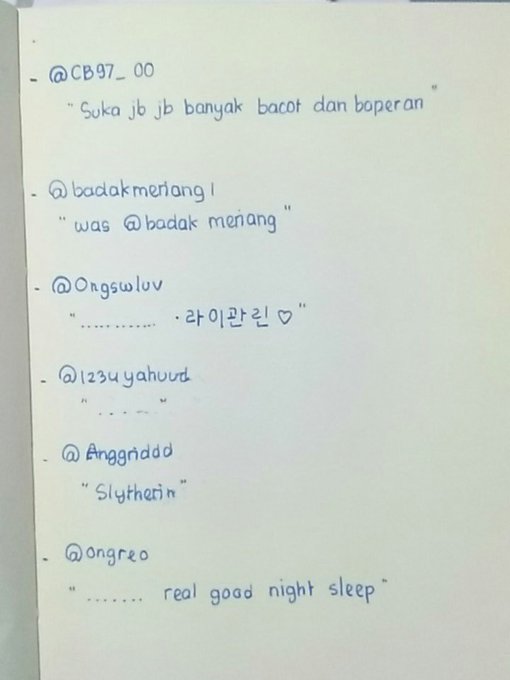 - @CB97_00
" Suka jb jb banyak bacot dan baperan "
- @badakmeriang1
" was @badak meriang "
- @Ongswluv
"............ .라이관린 ♡"
- @1234yahuud
" ..... "
- @Anggriddd
"Slytherin"
- @ongreo
" ....... real good night sleep "